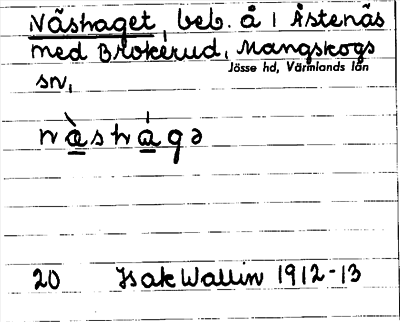 Näshaget, beb. å 1 Åstenäs
med Brokerud, Mangskogs
Jösse hd, Värmlands län
sn,
20 Isak Wallin 1912-13